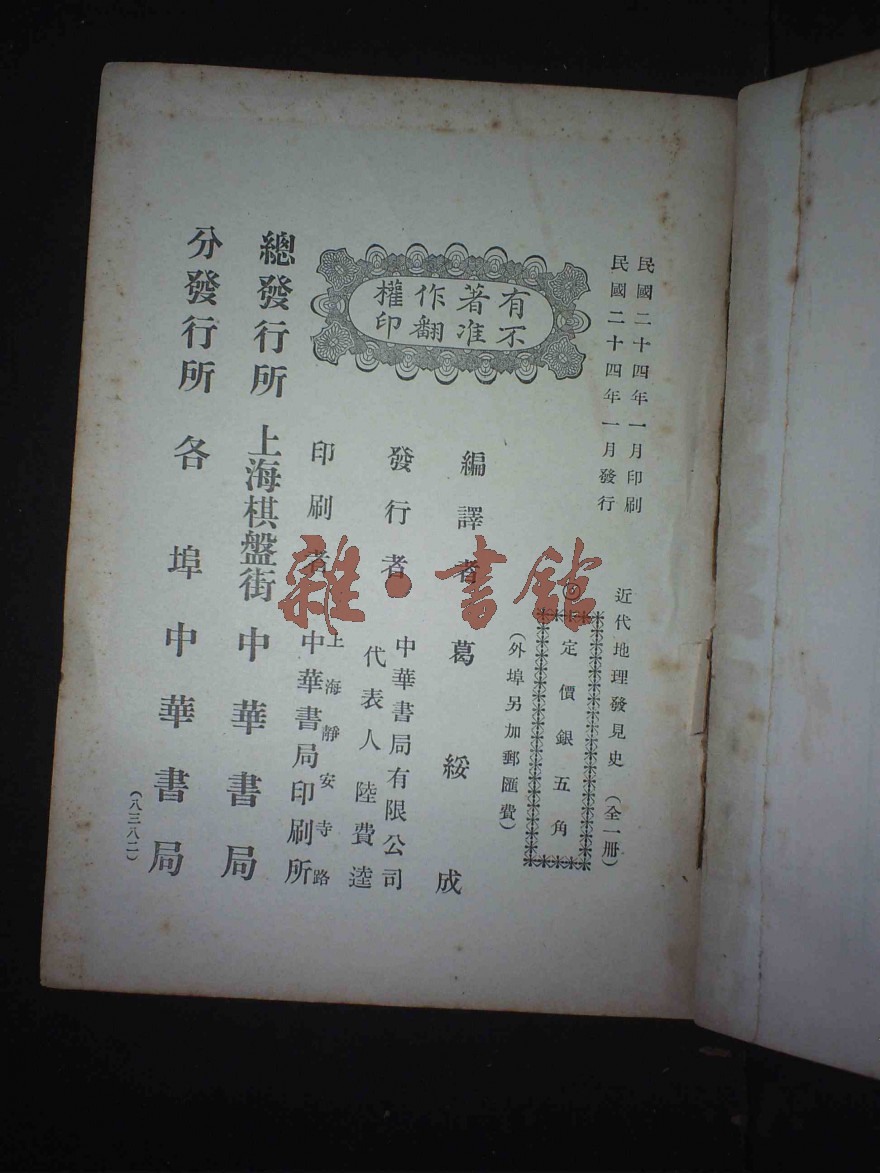 民國二十四年一月印刷
民國二十四年一月發行
近代地理發見史（全一册）
定價銀五角
（外埠另加郵匯費）
有著作權
不准翻印
編譯者 葛綏成
發行者 中華書局有限公司
代表人 陸費逵
印刷者 上海靜安寺路
中華書局印刷所
總發行所 上海棋盤街 中華書局
分發行所 各埠中華書局
（八三八二）
雜·書館